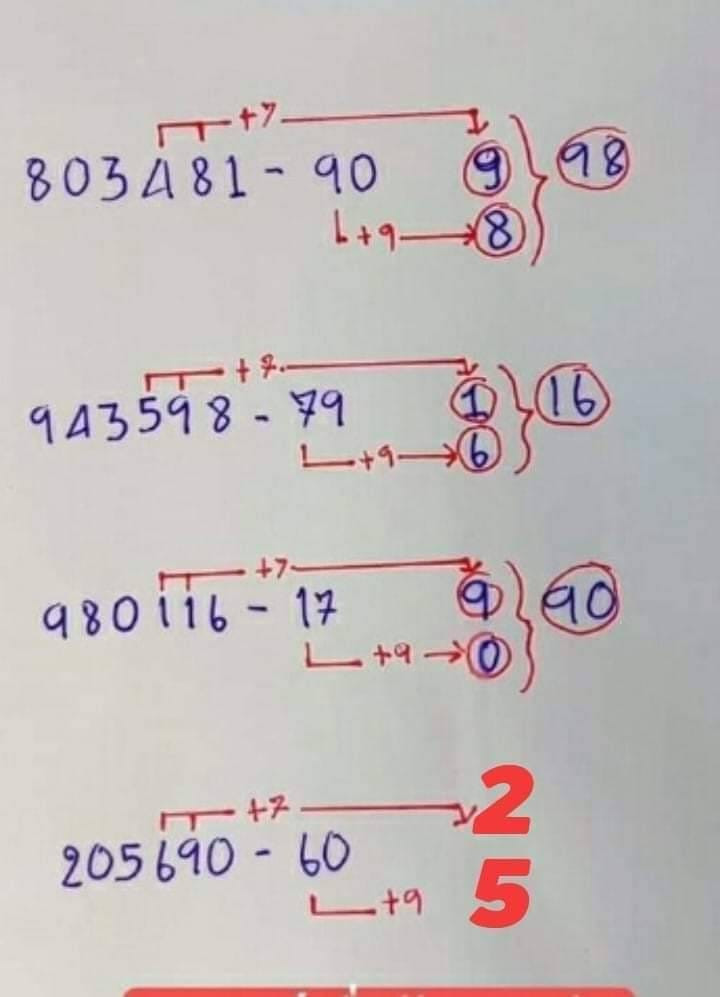 +7
803481 - 90 9 98
+9 8
+7
943598 - 79 1 16
+9 6
+7
980116 - 17 9 90
+9 0
+7 2
205690 - 60
+9 5